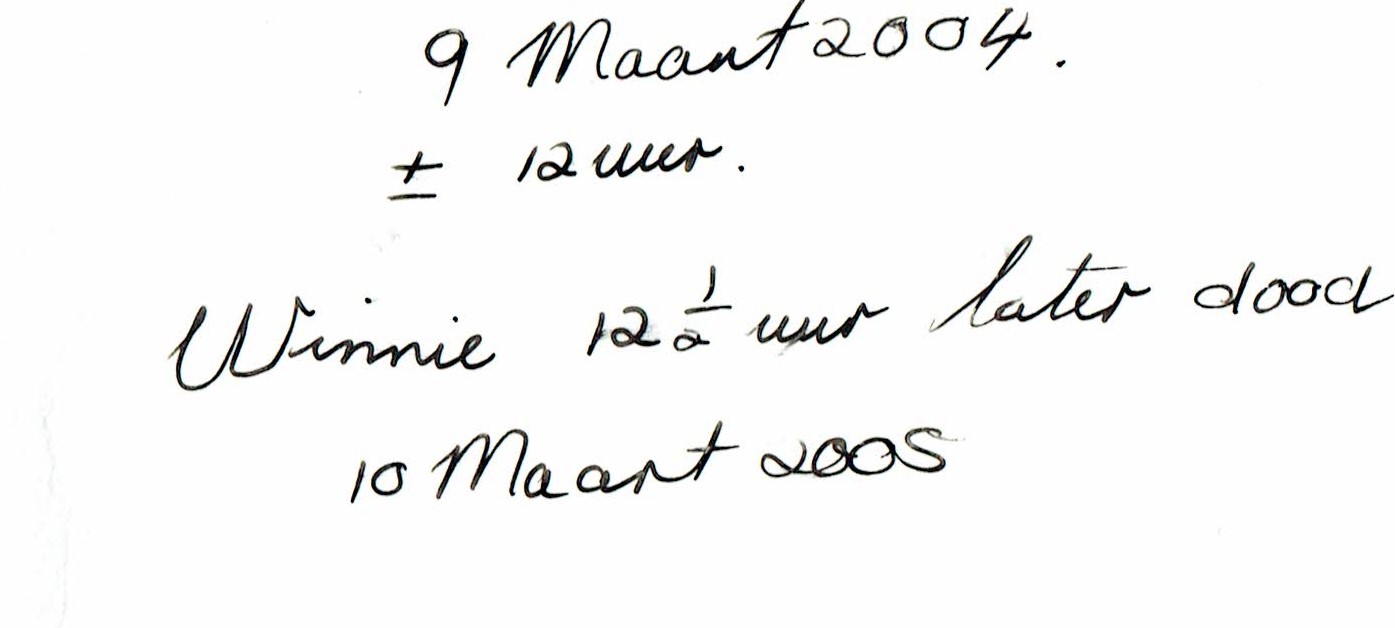 9 Maart 2004.
± 12 uur.
Winnie 12 1/2 uur later dood
10 Maart 2005